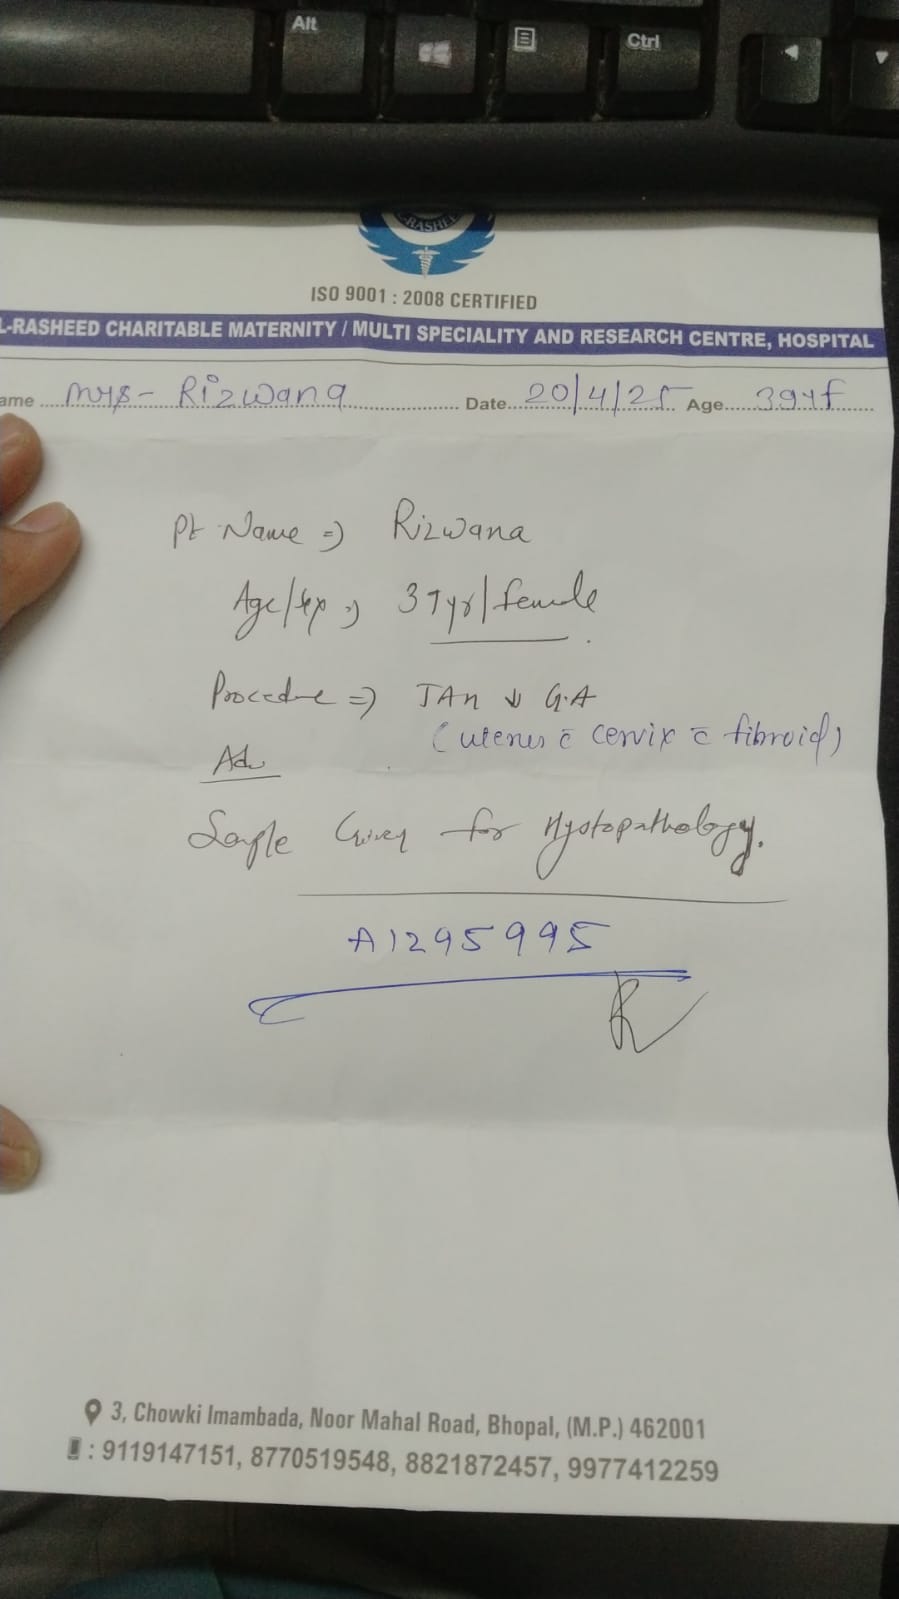 Alt
Ctrl
-RASHEE
ISO 9001 : 2008 CERTIFIED
L-RASHEED CHARITABLE MATERNITY / MULTI SPECIALITY AND RESEARCH CENTRE, HOSPITAL
ame Mrs- Rizwana Date 20/4/25 Age 39y/f
Pt Name => Rizwana
Age/Sex => 39yr/female
Procedure => TAH ↓ G.A
(uterus c̄ cervix c̄ fibroid)
Adv
Sample Given for Hystopathology.
A1295995
3, Chowki Imambada, Noor Mahal Road, Bhopal, (M.P.) 462001
: 9119147151, 8770519548, 8821872457, 9977412259